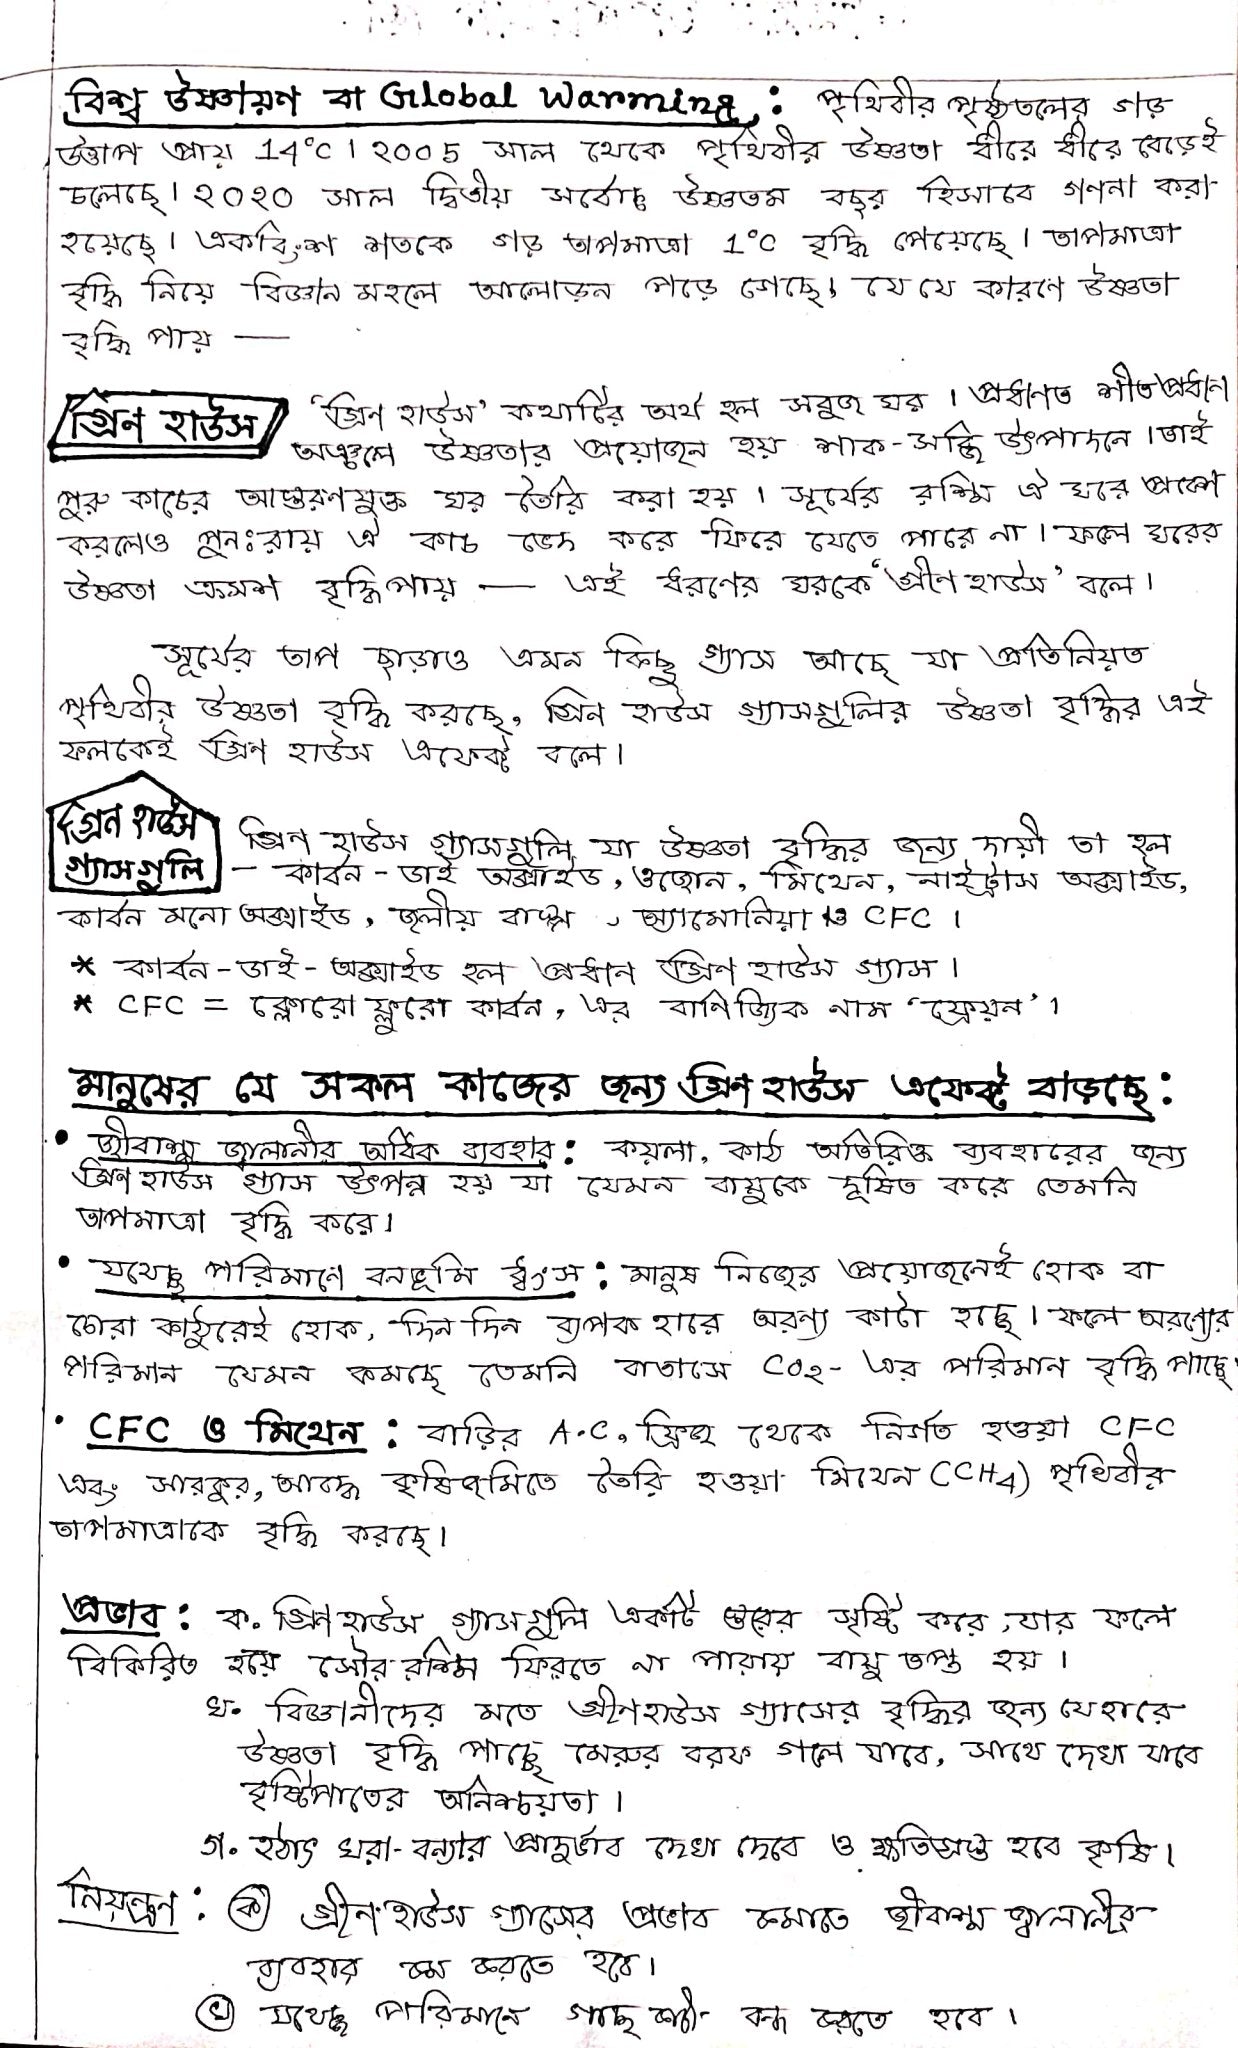 বিশ্ব উষ্ণায়ণ বা Global Warming : পৃথিবীর পৃষ্ঠতলের গড়
উত্তাপ প্রায় 14°C। 2005 সাল থেকে পৃথিবীর উষ্ণতা ধীরে ধীরে বেড়েই
চলেছে। ২০২০ সাল দ্বিতীয় সর্বোচ্চ উষ্ণতম বছর হিসাবে গণনা করা
হয়েছে। একবিংশ শতকে গড় তাপমাত্রা 1°C বৃদ্ধি পেয়েছে। তাপমাত্রা
বৃদ্ধি নিয়ে বিজ্ঞান মহলে আলোড়ন পড়ে গেছে। যে যে কারণে উষ্ণতা
বৃদ্ধি পায় —
গ্রিন হাউস 'গ্রিন হাউস' কথাটির অর্থ হল সবুজ ঘর। প্রধাণত শীতপ্রধান
অঞ্চলে উষ্ণতার প্রয়োজন হয় শাক-সব্জি উৎপাদনে। তাই
পুরু কাচের আস্তরণযুক্ত ঘর তৈরি করা হয়। সূর্যের রশ্মি ঐ ঘরে প্রবেশ
করলেও পুনঃরায় ঐ কাচ ভেদ করে ফিরে যেতে পারে না। ফলে ঘরের
উষ্ণতা ক্রমশ বৃদ্ধি পায় — এই ধরণের ঘরকে 'গ্রীণ হাউস' বলে।
সূর্যের তাপ ছাড়াও এমন কিছু গ্যাস আছে যা প্রতিনিয়ত
পৃথিবীর উষ্ণতা বৃদ্ধি করছে, গ্রিন হাউস গ্যাসগুলির উষ্ণতা বৃদ্ধির এই
ফলকেই গ্রিন হাউস এফেক্ট বলে।
গ্রিন হাউস
গ্যাসগুলি
গ্রিন হাউস গ্যাসগুলি যা উষ্ণতা বৃদ্ধির জন্য দায়ী তা হল
- কার্বন-ডাই অক্সাইড, ওজোন, মিথেন, নাইট্রাস অক্সাইড,
কার্বন মনো অক্সাইড, জলীয় বাষ্প, অ্যামোনিয়া ও CFC।
* কার্বন-ডাই-অক্সাইড হল প্রধান গ্রিন হাউস গ্যাস।
* CFC = ক্লোরো ফ্লুরো কার্বন, এর বাণিজ্যিক নাম 'ফ্রেয়ন'।
মানুষের যে সকল কাজের জন্য গ্রিন হাউস এফেক্ট বাড়ছে :
• জীবাশ্ম জ্বালানীর অধিক ব্যবহার : কয়লা, কাঠ অতিরিক্ত ব্যবহারের জন্য
গ্রিন হাউস গ্যাস উৎপন্ন হয় যা যেমন বায়ুকে দূষিত করে তেমনি
তাপমাত্রা বৃদ্ধি করে।
• যথেচ্ছ পরিমাণে বনভূমি ধ্বংস : মানুষ নিজের প্রয়োজনেই হোক বা
চোরা কাঠুরেই হোক, দিন দিন ব্যপক হারে অরণ্য কাটা হচ্ছে। ফলে অরণ্যের
পরিমান যেমন কমছে তেমনি বাতাসে CO2-এর পরিমান বৃদ্ধি পাচ্ছে
• CFC ও মিথেন : বাড়ির A.C, ফ্রিজ থেকে নির্গত হওয়া CFC
এবং সারকুর, আদ্রে কৃষিজমিতে তৈরি হওয়া মিথেন (CH4) পৃথিবীর
তাপমাত্রাকে বৃদ্ধি করছে।
প্রভাব : ক. গ্রিন হাউস গ্যাসগুলি একটি স্তরের সৃষ্টি করে, যার ফলে
বিকিরিত হয়ে সৌর রশ্মি ফিরতে না পারায় বায়ু তপ্ত হয়।
খ. বিজ্ঞানীদের মতে গ্রীণহাউস গ্যাসের বৃদ্ধির জন্য যেহারে
উষ্ণতা বৃদ্ধি পাচ্ছে মেরুর বরফ গলে যাবে, সাথে দেখা যাবে
বৃষ্টিপাতের অনিশ্চয়তা।
গ. হঠাৎ খরা-বন্যার প্রাদুর্ভাব দেখা দেবে ও ক্ষতিগ্রস্ত হবে কৃষি।
নিয়ন্ত্রন : ক গ্রীণ হাউস গ্যাসের প্রভাব কমাতে জীবাশ্ম জ্বালানীর
ব্যবহার কম করতে হবে।
খ যথেচ্ছ পরিমানে গাছ কাটা বন্ধ করতে হবে।